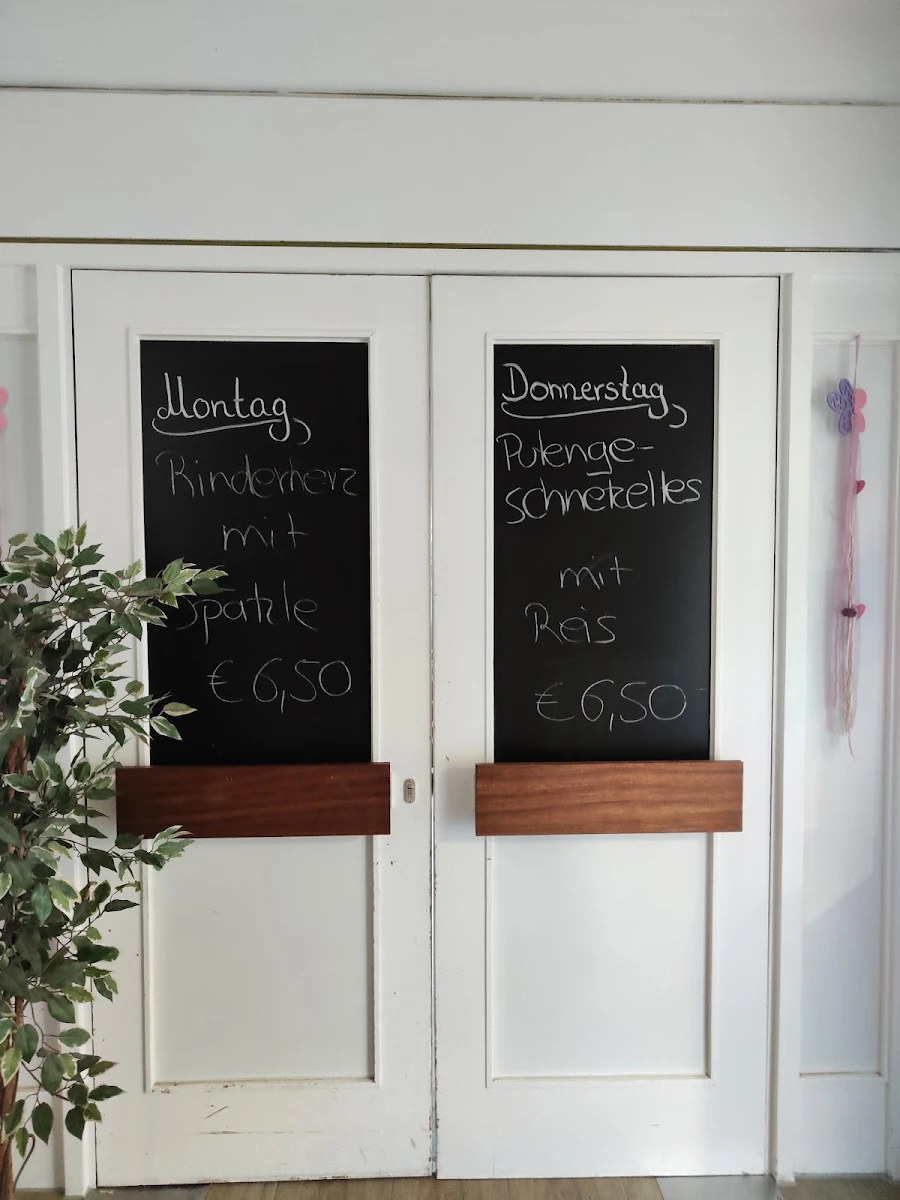 Montag
Rinderherz
mit
Spätzle
€ 6,50
Donnerstag
Putenge-
schnetzeltes
mit
Reis
€ 6,50